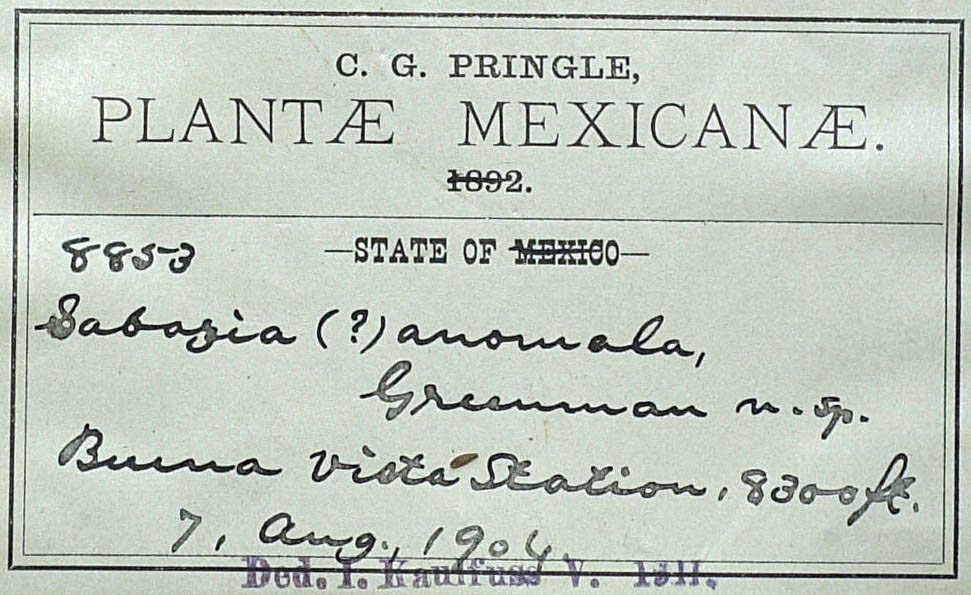 C. G. PRINGLE,
PLANTÆ MEXICANÆ.
1892.
8853 —STATE OF MEXICO—
Sabazia (?) anomala,
Greenman n. sp.
Buena Vista Station, 8300 ft.
7, Aug., 1904.
Ded. I. Kaulfuss V. 1911.